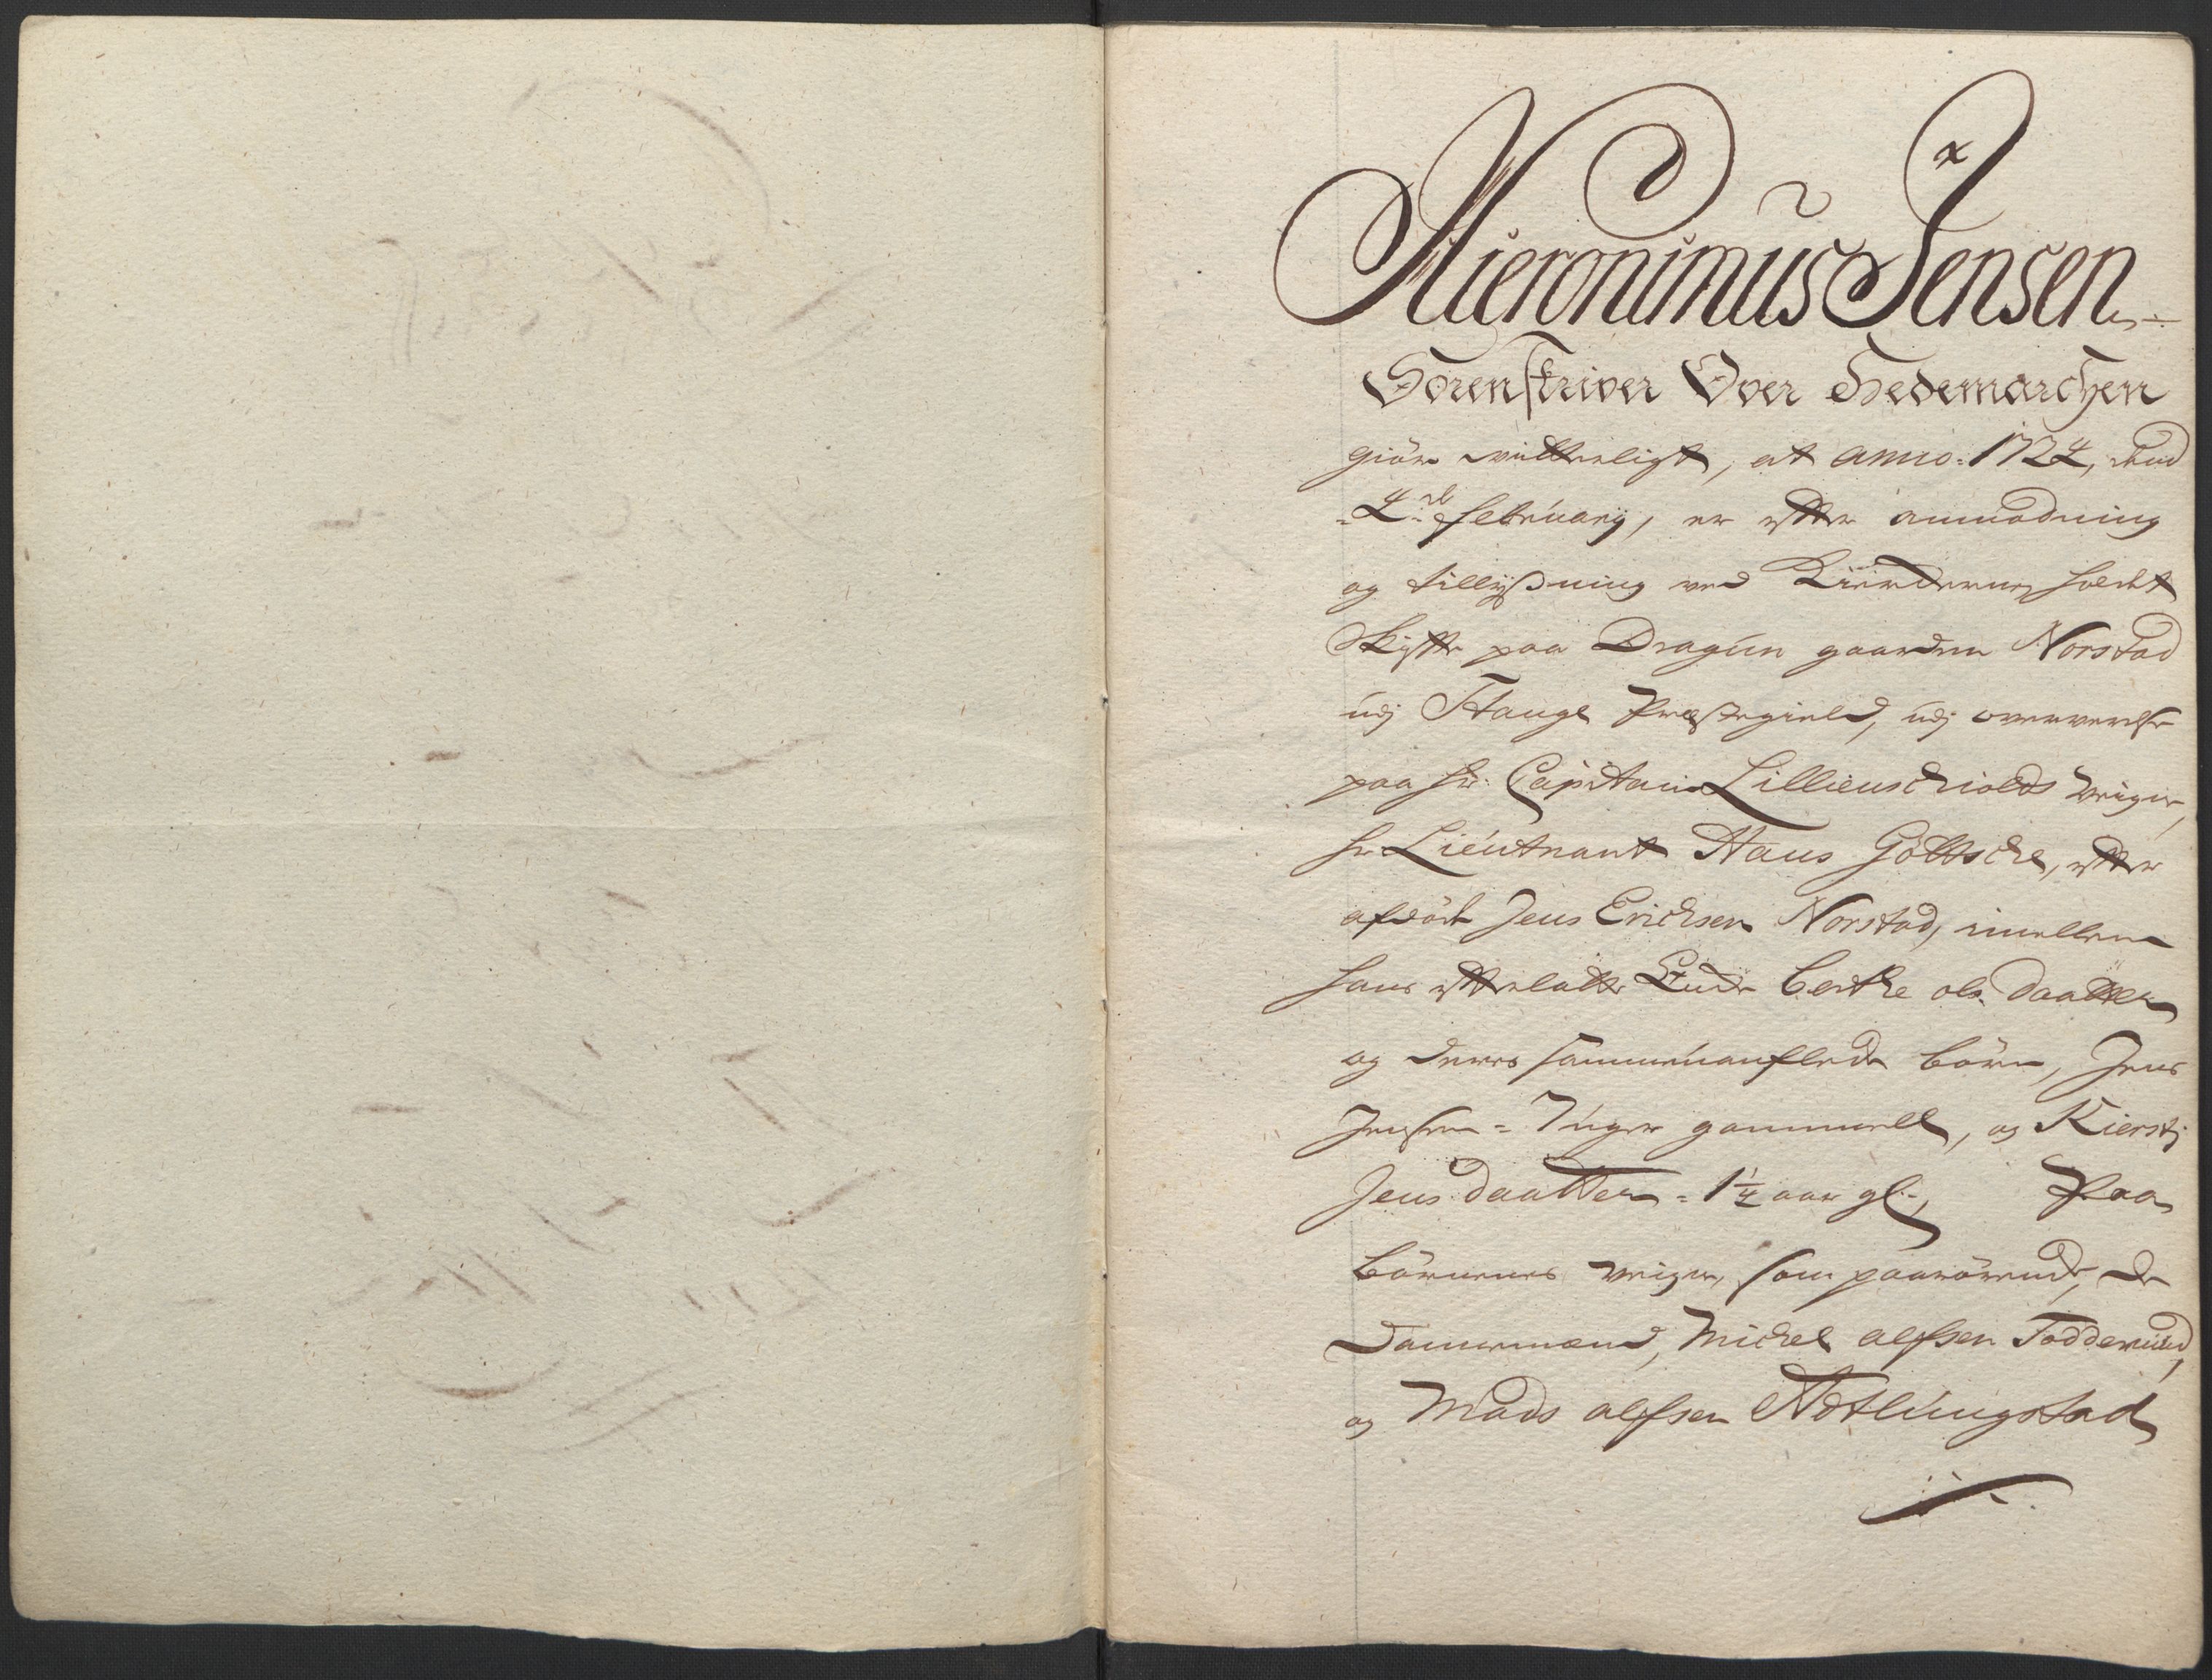 Hieronimus Jensen
Sorenskriver Over Hedemarchen
giör vitterligt, at anno: 1724, dend
4de february, er efter anmodning
og tillyßning ved Kierckerne, holdt
Skifte paa Dragun gaarden Norstad
udj Stange Præstegield, udj oververelse
paa hr: Capitain Lillienschiolds Veigne,
hr Lieutnant Hans Göttsche, efter
afdöde Jens Erichsen Norstad, imellem
hans efterlatte Encke Berthe ols: daatter
og deres sammenauflede börn, Jens
Jensen = 7 uger gammell, og Kiersti
Jens daatter = 1 1/4 aar gl:, Paa
börnenes veigne, som paarörende, de
Dannemænd, Michel alfsen Todderud,
og Mads alfsen Adtlungstad